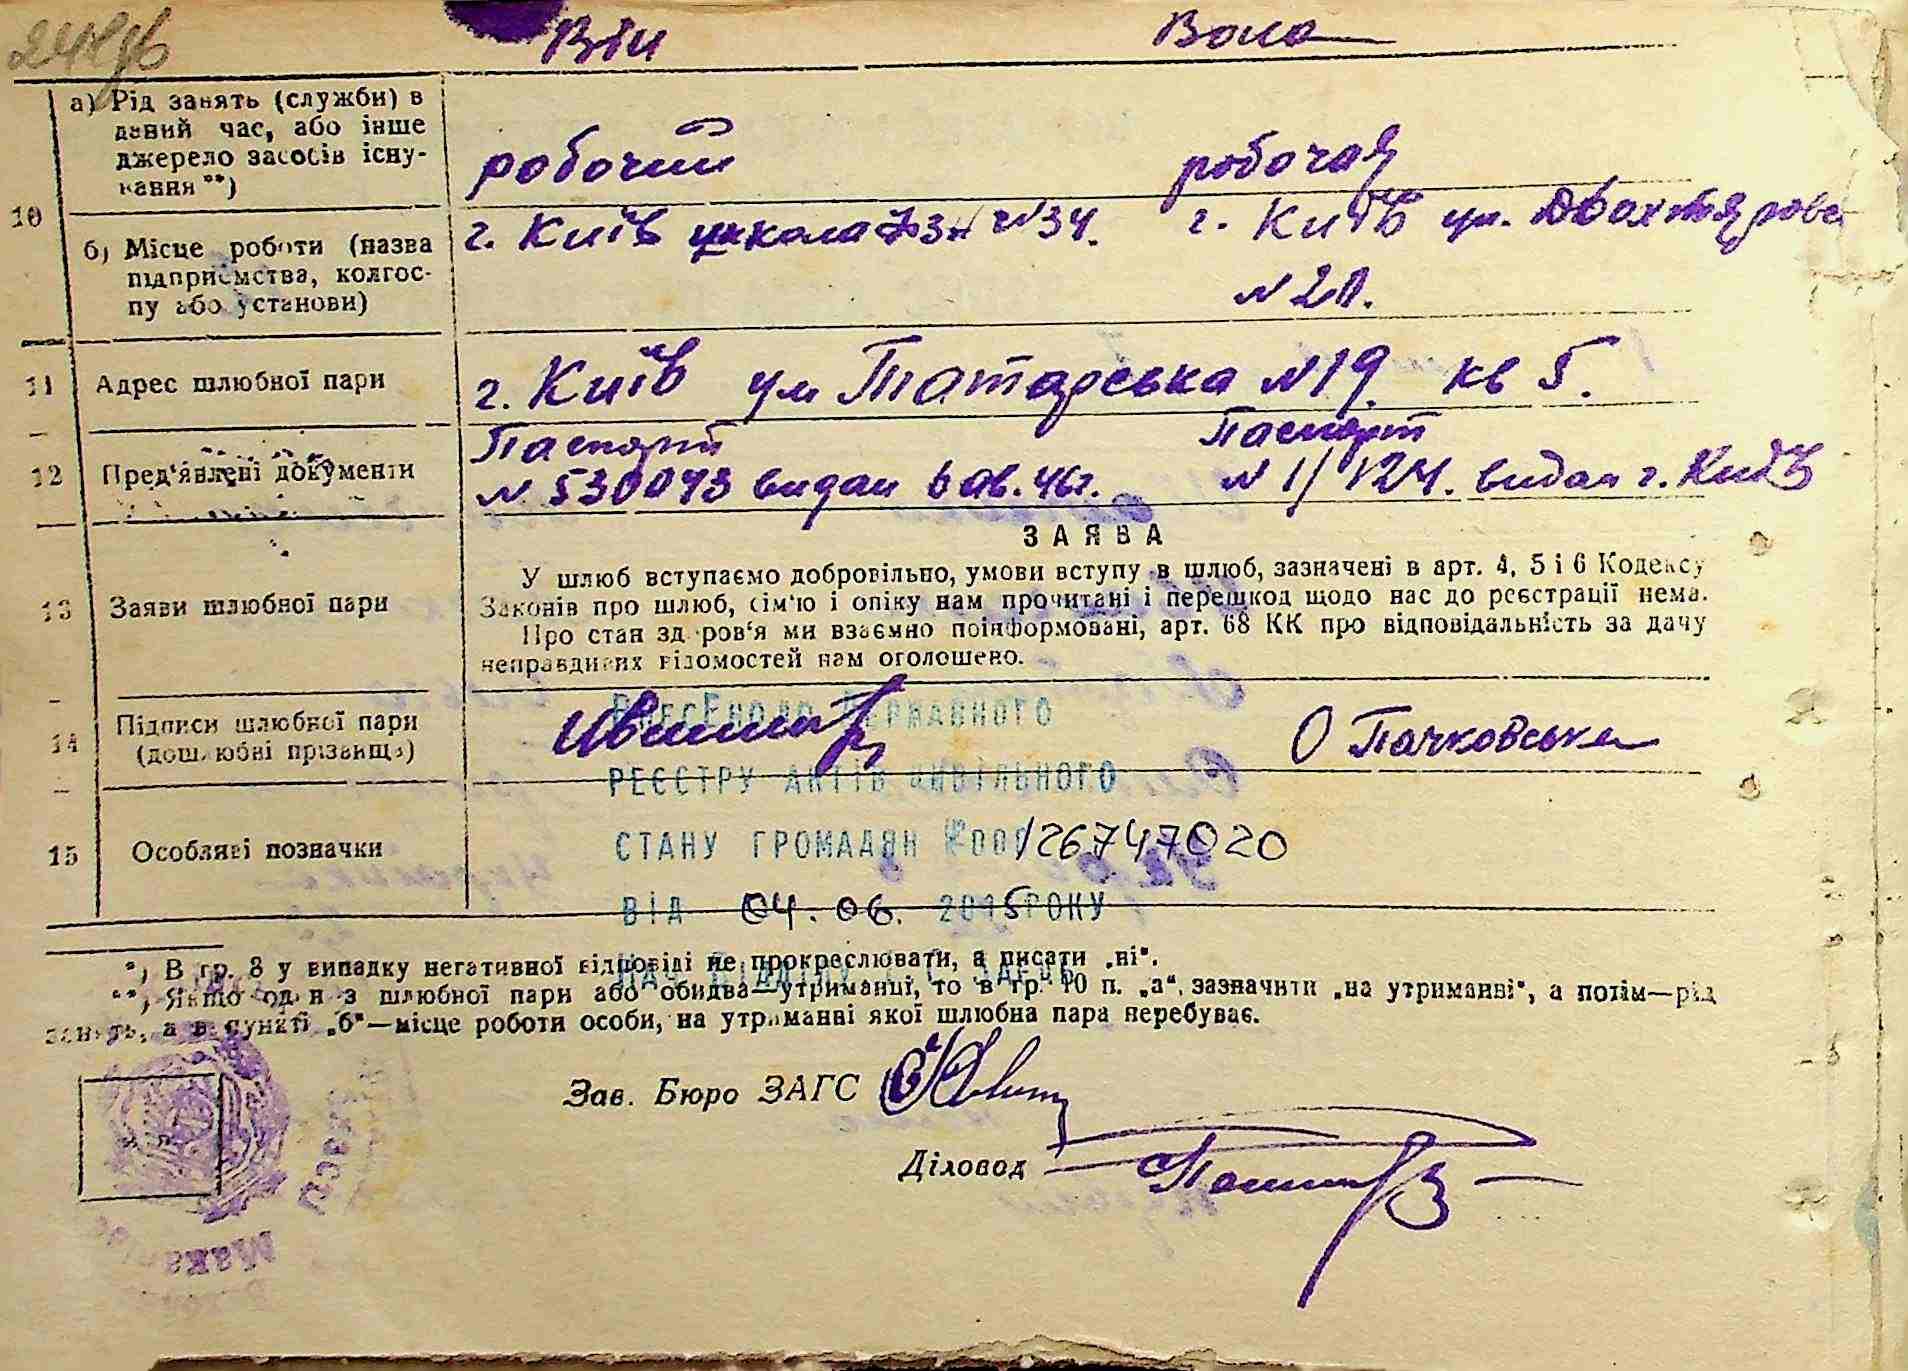 Він Вона
10 а) Рід занять (служби) в
даний час, або інше
джерело засобів існу-
вання **)
робочий робочая
б) Місце роботи (назва
підприємства, колгос-
пу або установи)
г. Київ школа № 34. г. Київ ул. Двохтярова
№ 21.
11 Адрес шлюбної пари г. Київ ул Татарська №19. кв 5.
12 Пред'явлені документи
Паспорт Паспорт
№ 530093 видан 6 ав. 46г. № 1/124. видан г. Київ
ЗАЯВА
13 Заяви шлюбної пари
У шлюб вступаємо добровільно, умови вступу в шлюб, зазначені в арт. 4, 5 і 6 Кодексу
Законів про шлюб, сім'ю і опіку нам прочитані і перешкод щодо нас до реєстрації нема.
Про стан здоров'я ми взаємно поінформовані, арт. 68 КК про відповідальність за дачу
неправдивих відомостей нам оголошено.
14 Підписи шлюбної пари
(дошлюбні прізвища)
О Пачковська
ВНЕСЕНО ДО ДЕРЖАВНОГО
РЕЄСТРУ АКТІВ ЦИВІЛЬНОГО
15 Особливі позначки
СТАНУ ГРОМАДЯН №00126747020
ВІД 04.06. 2015 РОКУ
*) В гр. 8 у випадку негативної відповіді не прокреслювати, а писати „ні".
**) Якщо один з шлюбної пари або обидва—утриманці, то в гр. 10 п. „а" зазначити „на утриманні", а потім—рід
занять, а в пункті „б"—місце роботи особи, на утриманні якої шлюбна пара перебуває.
Зав. Бюро ЗАГС
Діловод